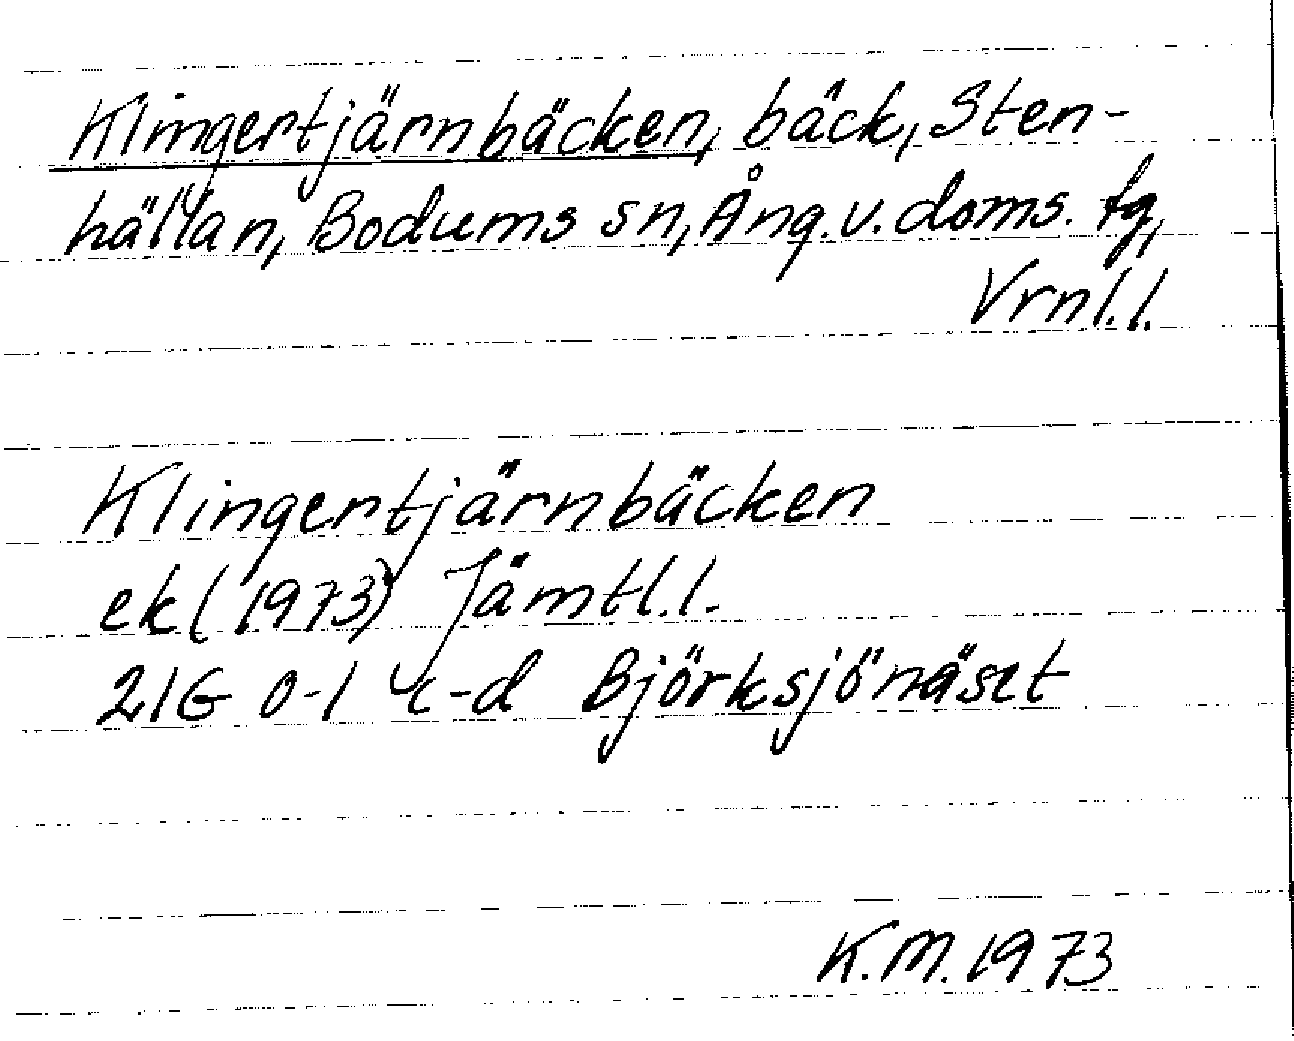 Klingertjärnbäcken, bäck, Sten-
hällan, Bodums sn, Ång. v. doms. tg,
Vrnl. l.
Klingertjärnbäcken
ek (1973) Jämtl. l.
21G 0-1 c-d Björksjönäset
K. M. 1973